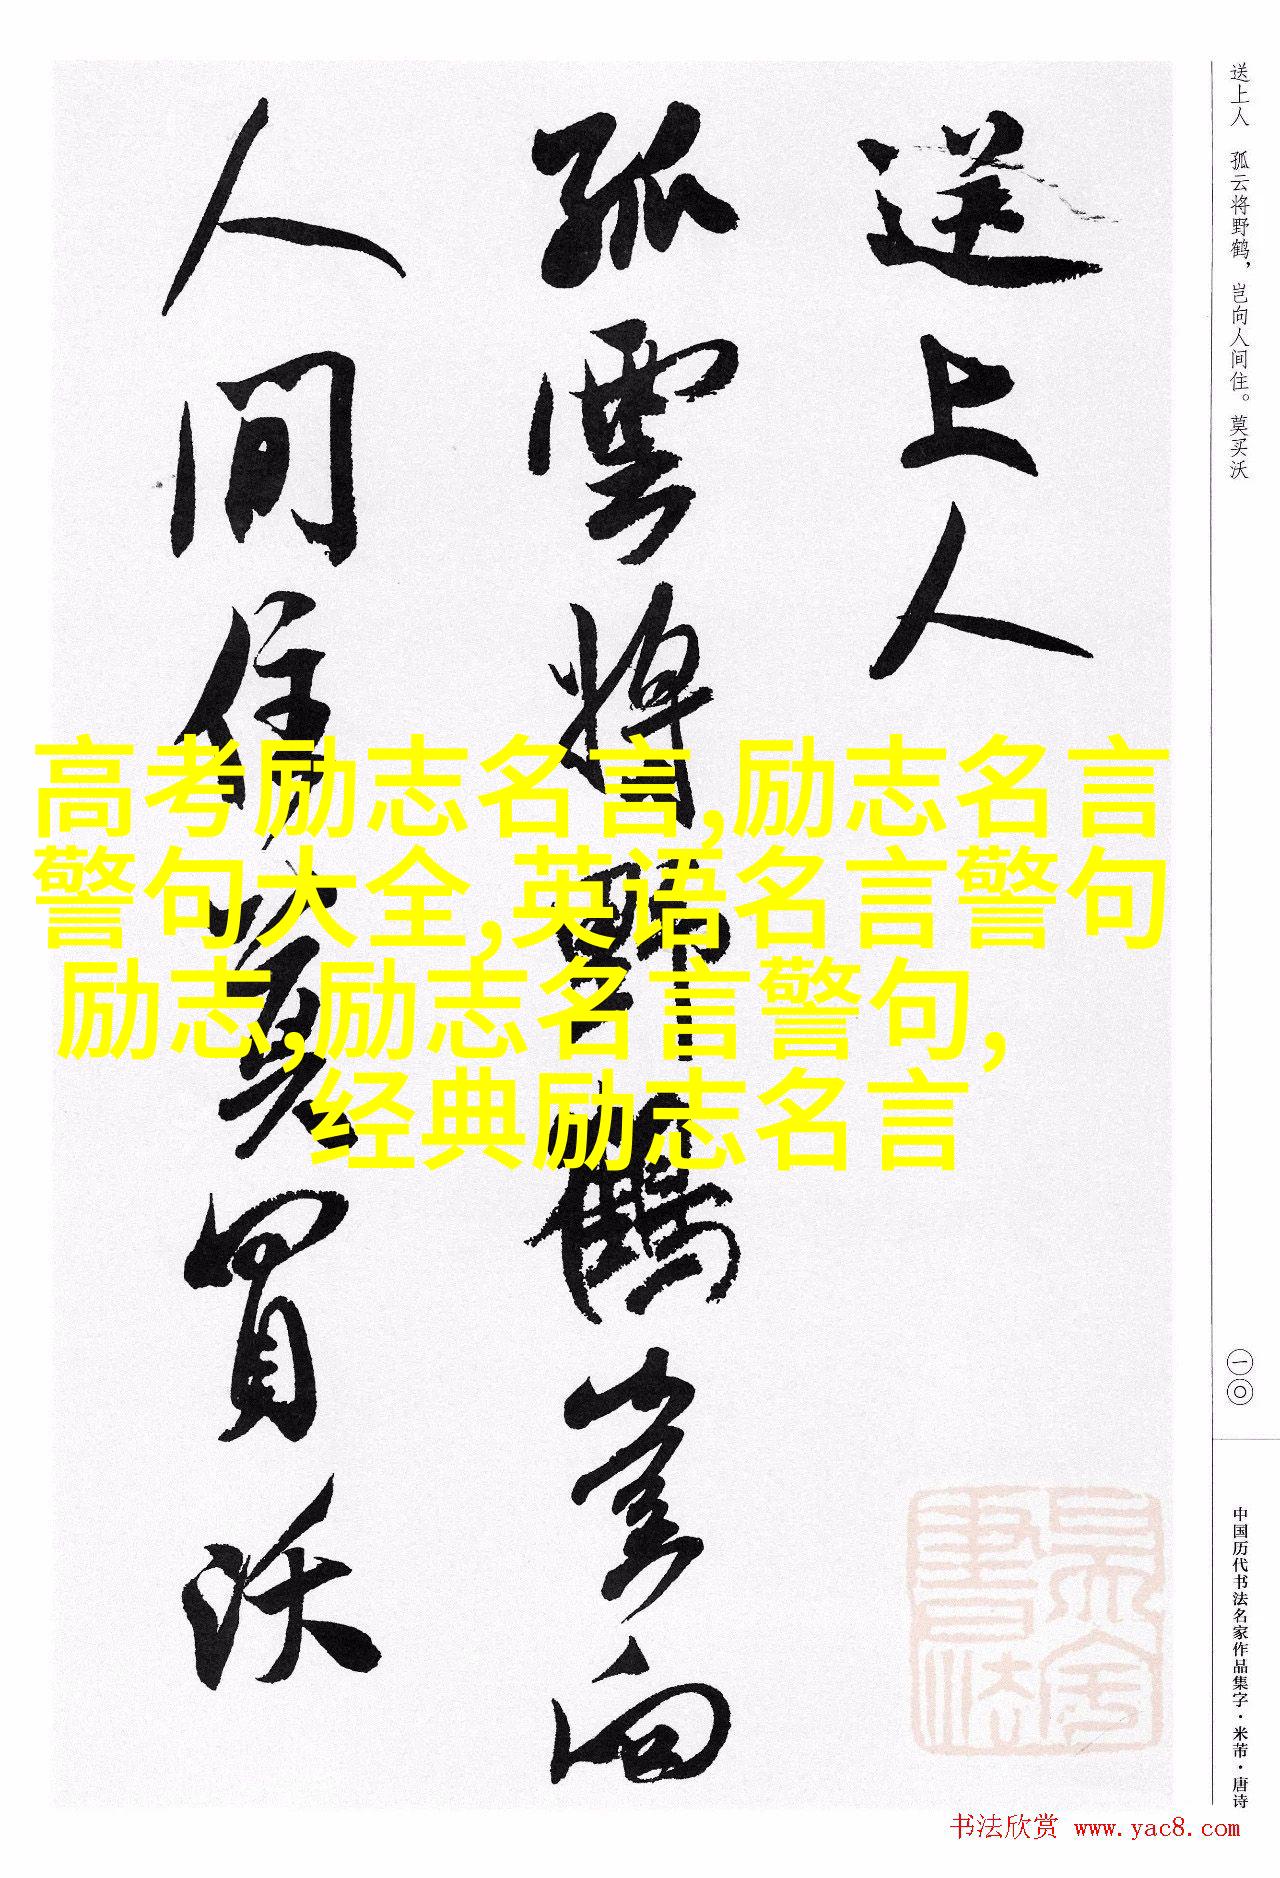 送上人
孤雲將野鶴豈向
人間住莫買沃
高考励志名言,励志名言
警句大全,英语名言警句
励志,励志名言警句,
经典励志名言
送上人　孤云将野鹤，岂向人间住。莫买沃
一〇
中国历代书法名家作品集字·米芾·唐诗
书法欣赏 www.yac8.com